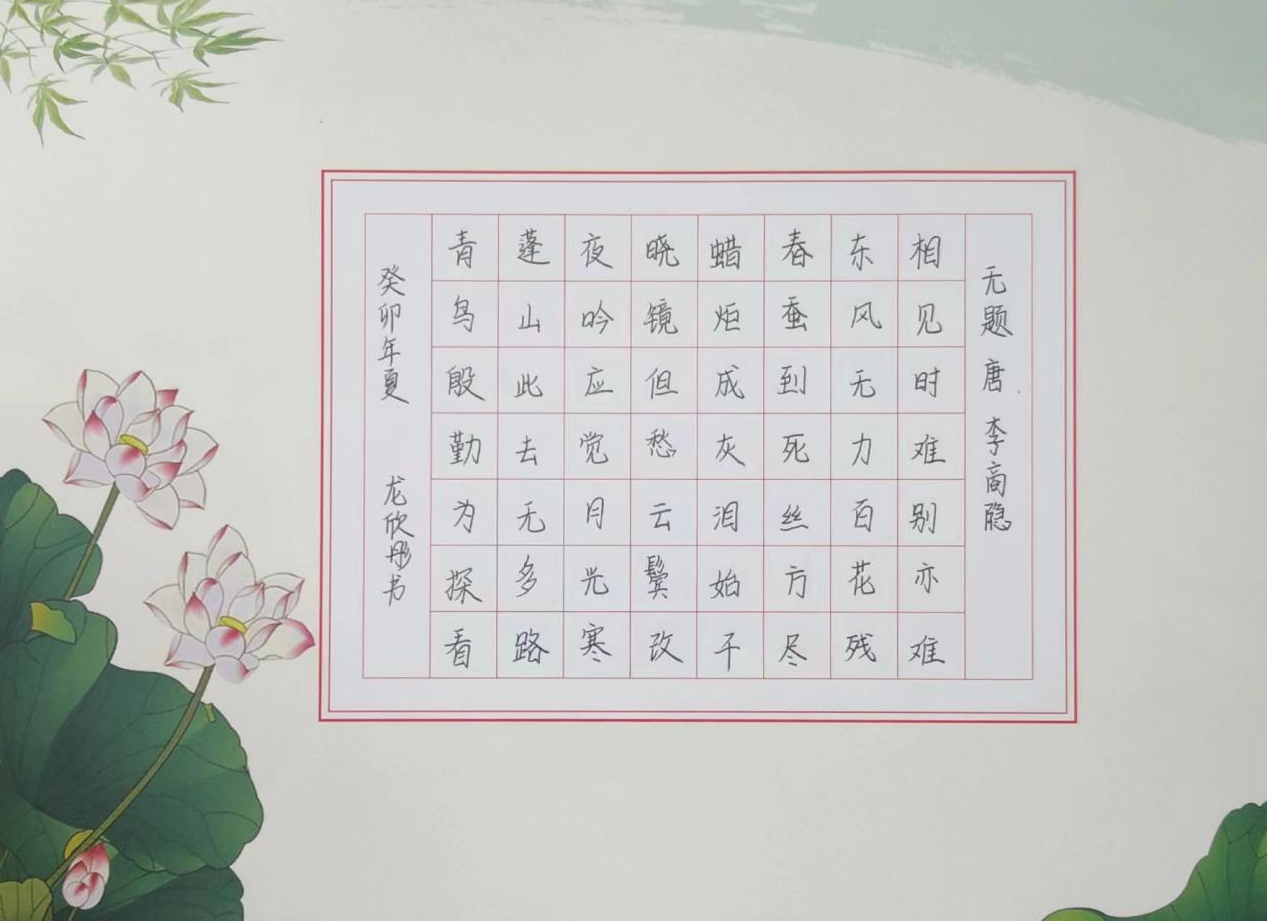 无题 唐 李商隐
相见时难别亦难
东风无力百花残
春蚕到死丝方尽
蜡炬成灰泪始干
晓镜但愁云鬓改
夜吟应觉月光寒
蓬山此去无多路
青鸟殷勤为探看
癸卯年夏 龙欣彤书